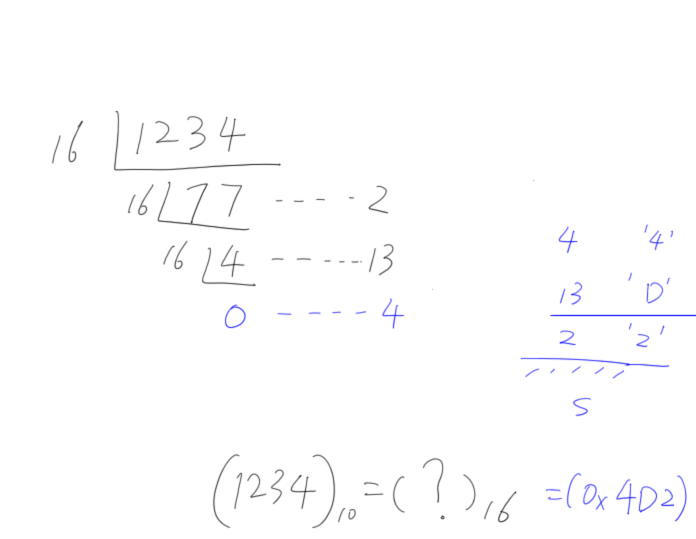 16 1234
16 77 ----- 2
16 4 ------- 13
0 ----- 4
4 '4'
13 'D'
2 '2'
S
(1234)10 = (?)16 = (0x4D2)